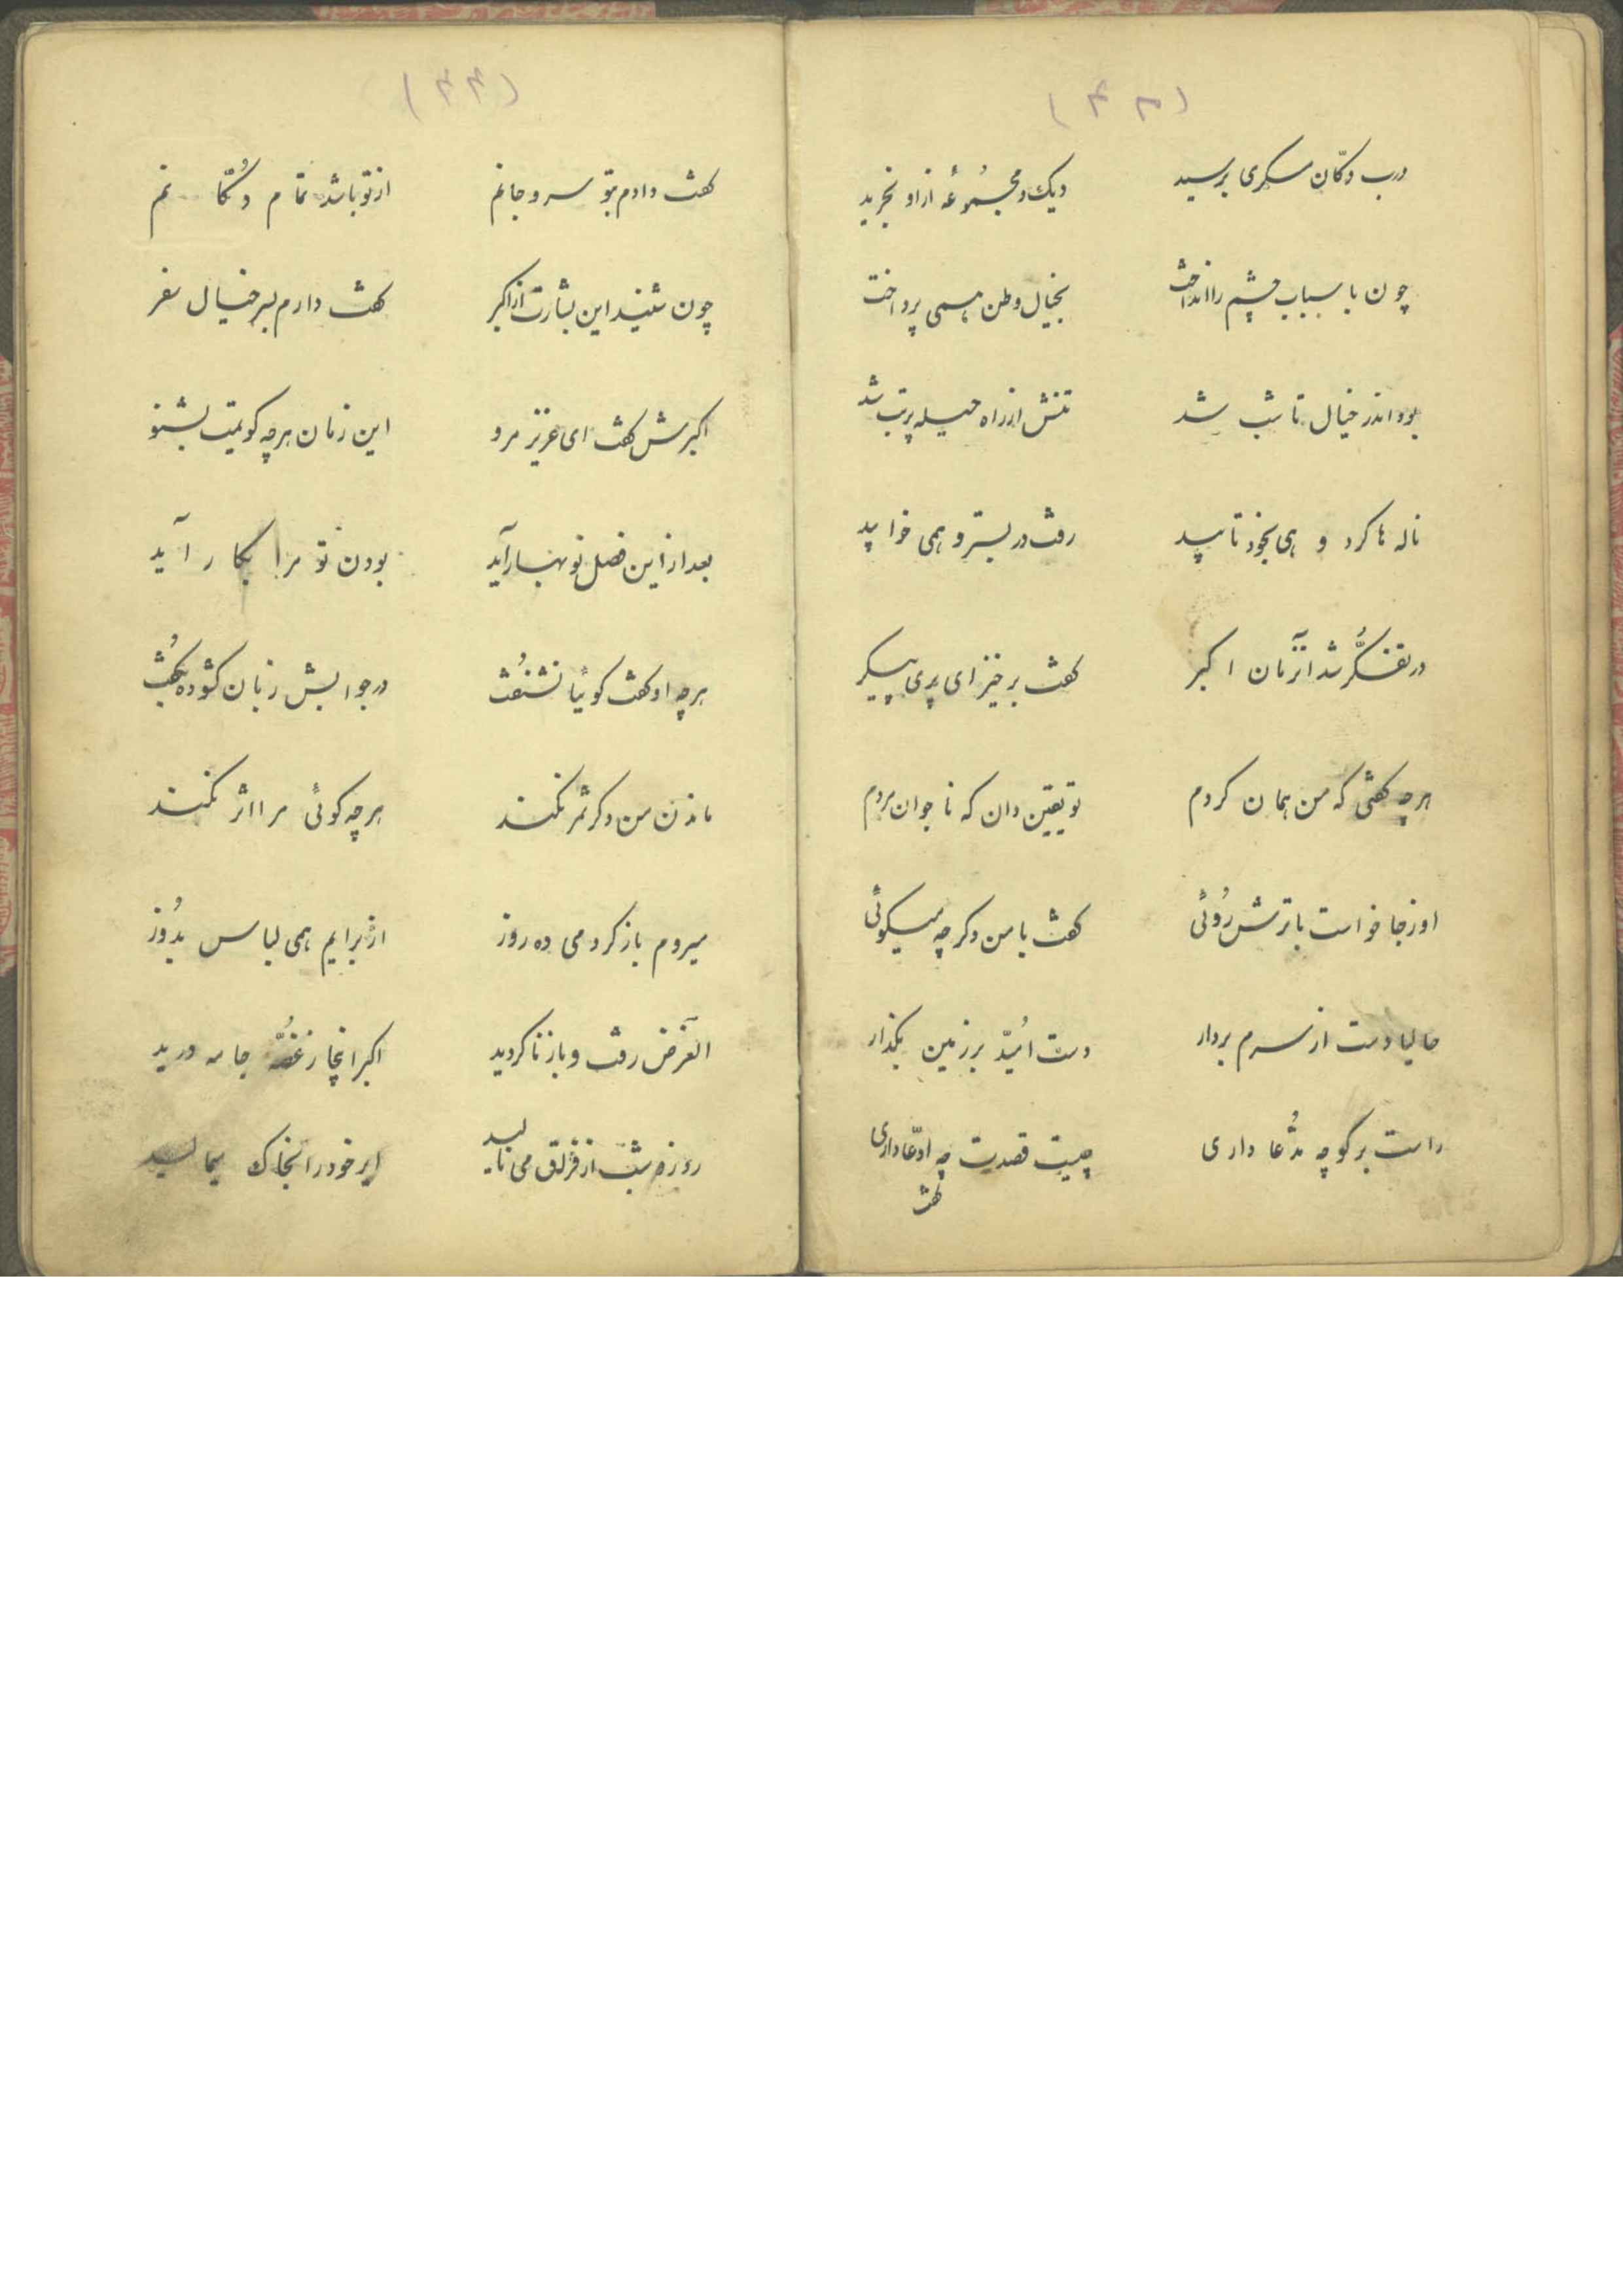 (۴۳)
درب دکّان مسگری برسید دیک و مجمُوعهٔ از او بخرید
چون باسباب چشم را انداخت بخیال وطن همی پرداخت
بود اندر خیال تا شب شد تنش از راه حیله پرتب شد
ناله ها کرد و همی بخود تابید رفت در بستر و همی خوابید
در تفکُّر شد آنزمان اکبر کفت برخیز ای پری پیکر
هرچه کفتی که من همان کردم تو یقین دان که ناجوان مردم
او ز جا خواست با ترش رُوئی کفت با من دکر چه میکوئی
حالیا دست از سرم بردار دست امُیّد بر زمین بکذار
راست بر کو چه مدُّعا داری چیست قصدت چه ادّعا داری
کفت
(۴۴)
کفت دادم بتو سر و جانم از تو باشد تمام دُکّانم
چون شنید این بشارت از اکبر کفت دارم بسر خیال سفر
اکبرش کفت ای عزیز مرو این زمان هرچه کویمت بشنو
بعد از این فصل نو بهار آید بودن تو مرا بکار آید
هرچه او کفت کوئیا نشنُفت در جوابش زبان کشوده بکُفت
ماندن من دکر ثمر نکند هرچه کوئی مرا اثر نکند
میروم باز کردمی ده روز از برایم همی لباس بدُوز
الغرض رفت و باز نا کردید اکبر انجا ز غصُّه جامه درید
روز و شب از فراق می نالید سر خود را بخاک میمالید